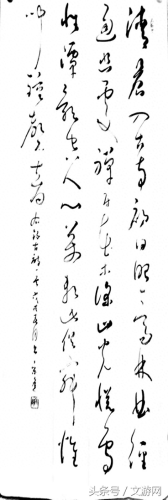 清晨入古寺初日照高林曲徑
通幽處禪房花木深山光悅鳥
性潭影空人心萬籟此俱寂惟
鐘磬音
头条号 / 文游网